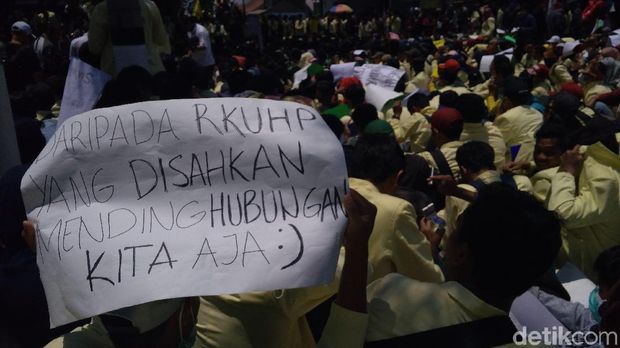 DARIPADA RKUHP
YANG DISAHKAN
MENDING HUBUNGAN
KITA AJA :)
detikcom